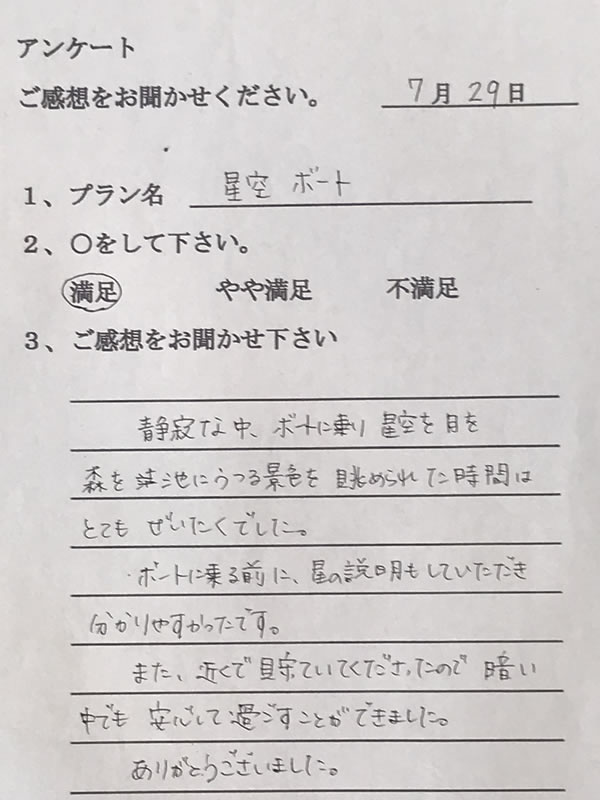 アンケート
ご感想をお聞かせください。 7月29日
1、プラン名 星空 ボート
2、〇をして下さい。
満足 やや満足 不満足
3、ご感想をお聞かせ下さい
静寂な中、ボートに乗り 星空を 月を
森を 池にうつる景色を 眺められた時間は
とても ぜいたくでした。
・ボートに乗る前に、星の説明もしていただき
分かりやすかったです。
また、近くで見守っていてくださったので 暗い
中でも 安心して過ごすことができました。
ありがとうございました。